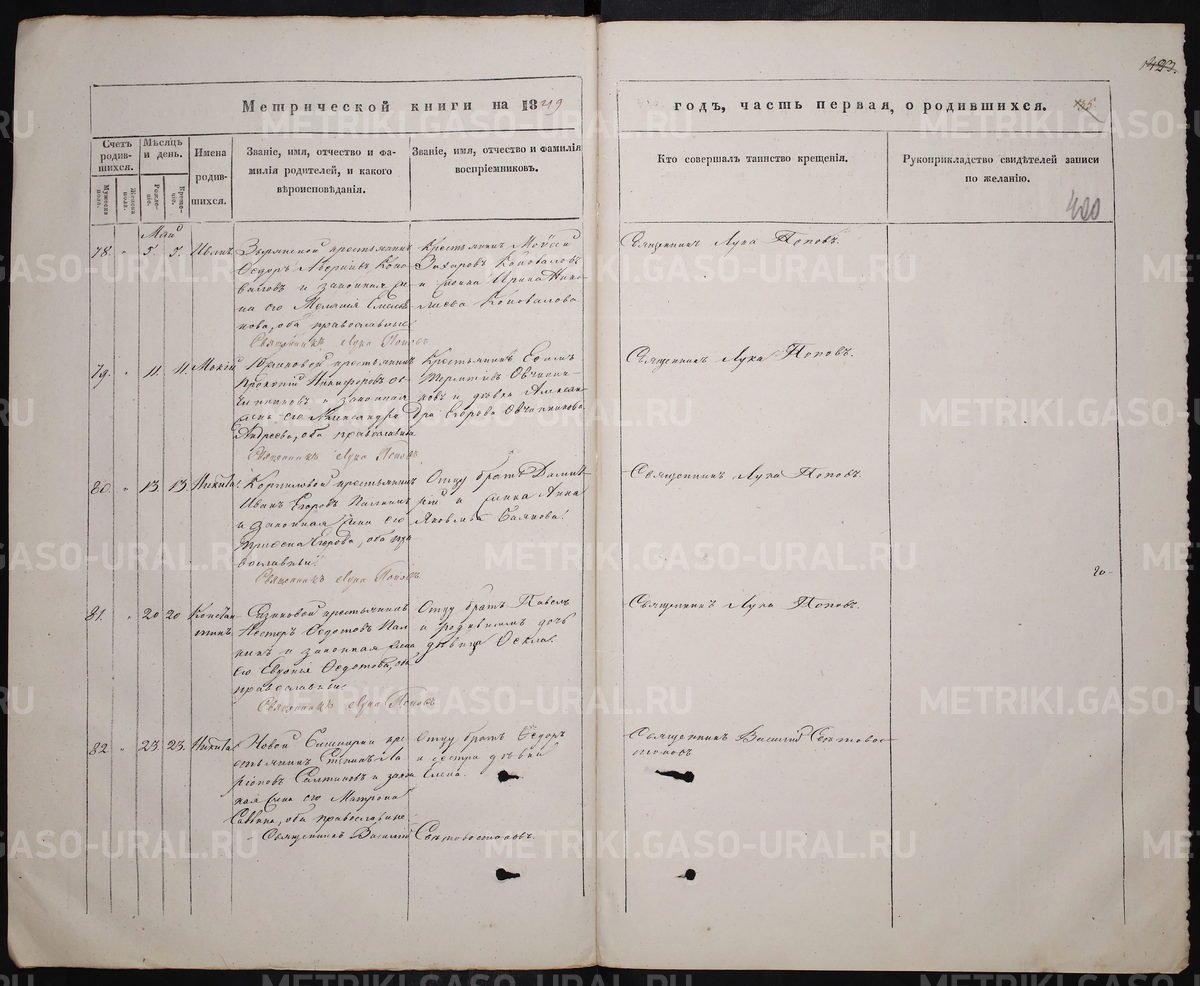 Метрической книги на 1849
годъ, часть первая, о родившихся.
135
423.
400
Счетъ родив-шихся.
Мужеска полъ.
Женска полъ.
Мѣсяцъ и день.
Рожде-нія.
Креще-нія.
Имена родив-шихся.
Званіе, имя, отчество и фа-
милія родителей, и какого
вѣроисповѣданія.
Званіе, имя, отчество и фамилія
воспріемниковъ.
Кто совершалъ таинство крещенія.
Рукоприкладство свидѣтелей записи
по желанію.
Май
78. " 5. 7.
крестьянинъ
Ѳедоръ Коно-
валовъ и законная же-
на его Меланія
нова, оба православные
Священникъ Лука Поповъ
Крестьянинъ Мойсей
Захаровъ Коноваловъ
и Ирина Нико-
лаева Коновалова
Священникъ Лука Поповъ.
79. " 11. 11. Мокій
крестьянинъ
Прокопій Никифоровъ Ов-
чинниковъ и законная
жена его Александра
Андреева, оба православные
Священникъ Лука Поповъ
Крестьянинъ Ефимъ
Овчинни-
ковъ и дѣвка Алексан-
дра Егорова Овчинникова
Священникъ Лука Поповъ.
80. " 13. 13. Никита
крестьянинъ
Иванъ Егоровъ Палкинъ
и законная жена его
Егорова, оба пра-
вославные.
Священникъ Лука Поповъ
Отцу братъ Дмит-
рій и Анна
Яковлева
Священникъ Лука Поповъ.
81. " 20 20 Констан
тинъ
крестьянинъ
Нестеръ Ѳедотовъ Пал-
кинъ и законная жена
его Евгенія Ѳедотова, оба
православные.
Священникъ Лука Поповъ
Отцу братъ Павелъ
и дочь
дѣвица Ѳекла.
Священникъ Лука Поповъ.
82 " 23. 23. Никита
Новой кре
стьянинъ Степанъ Ла
ріоновъ Салтановъ и закон
ная жена его Матрона
Саввина, оба православные
Священникъ Василій Свѣтовостоковъ.
Отцу братъ Ѳедоръ
и сестра дѣвка
Елена.
Священникъ Василій Свѣтовос
токовъ
METRIKI.GASO-URAL.RU